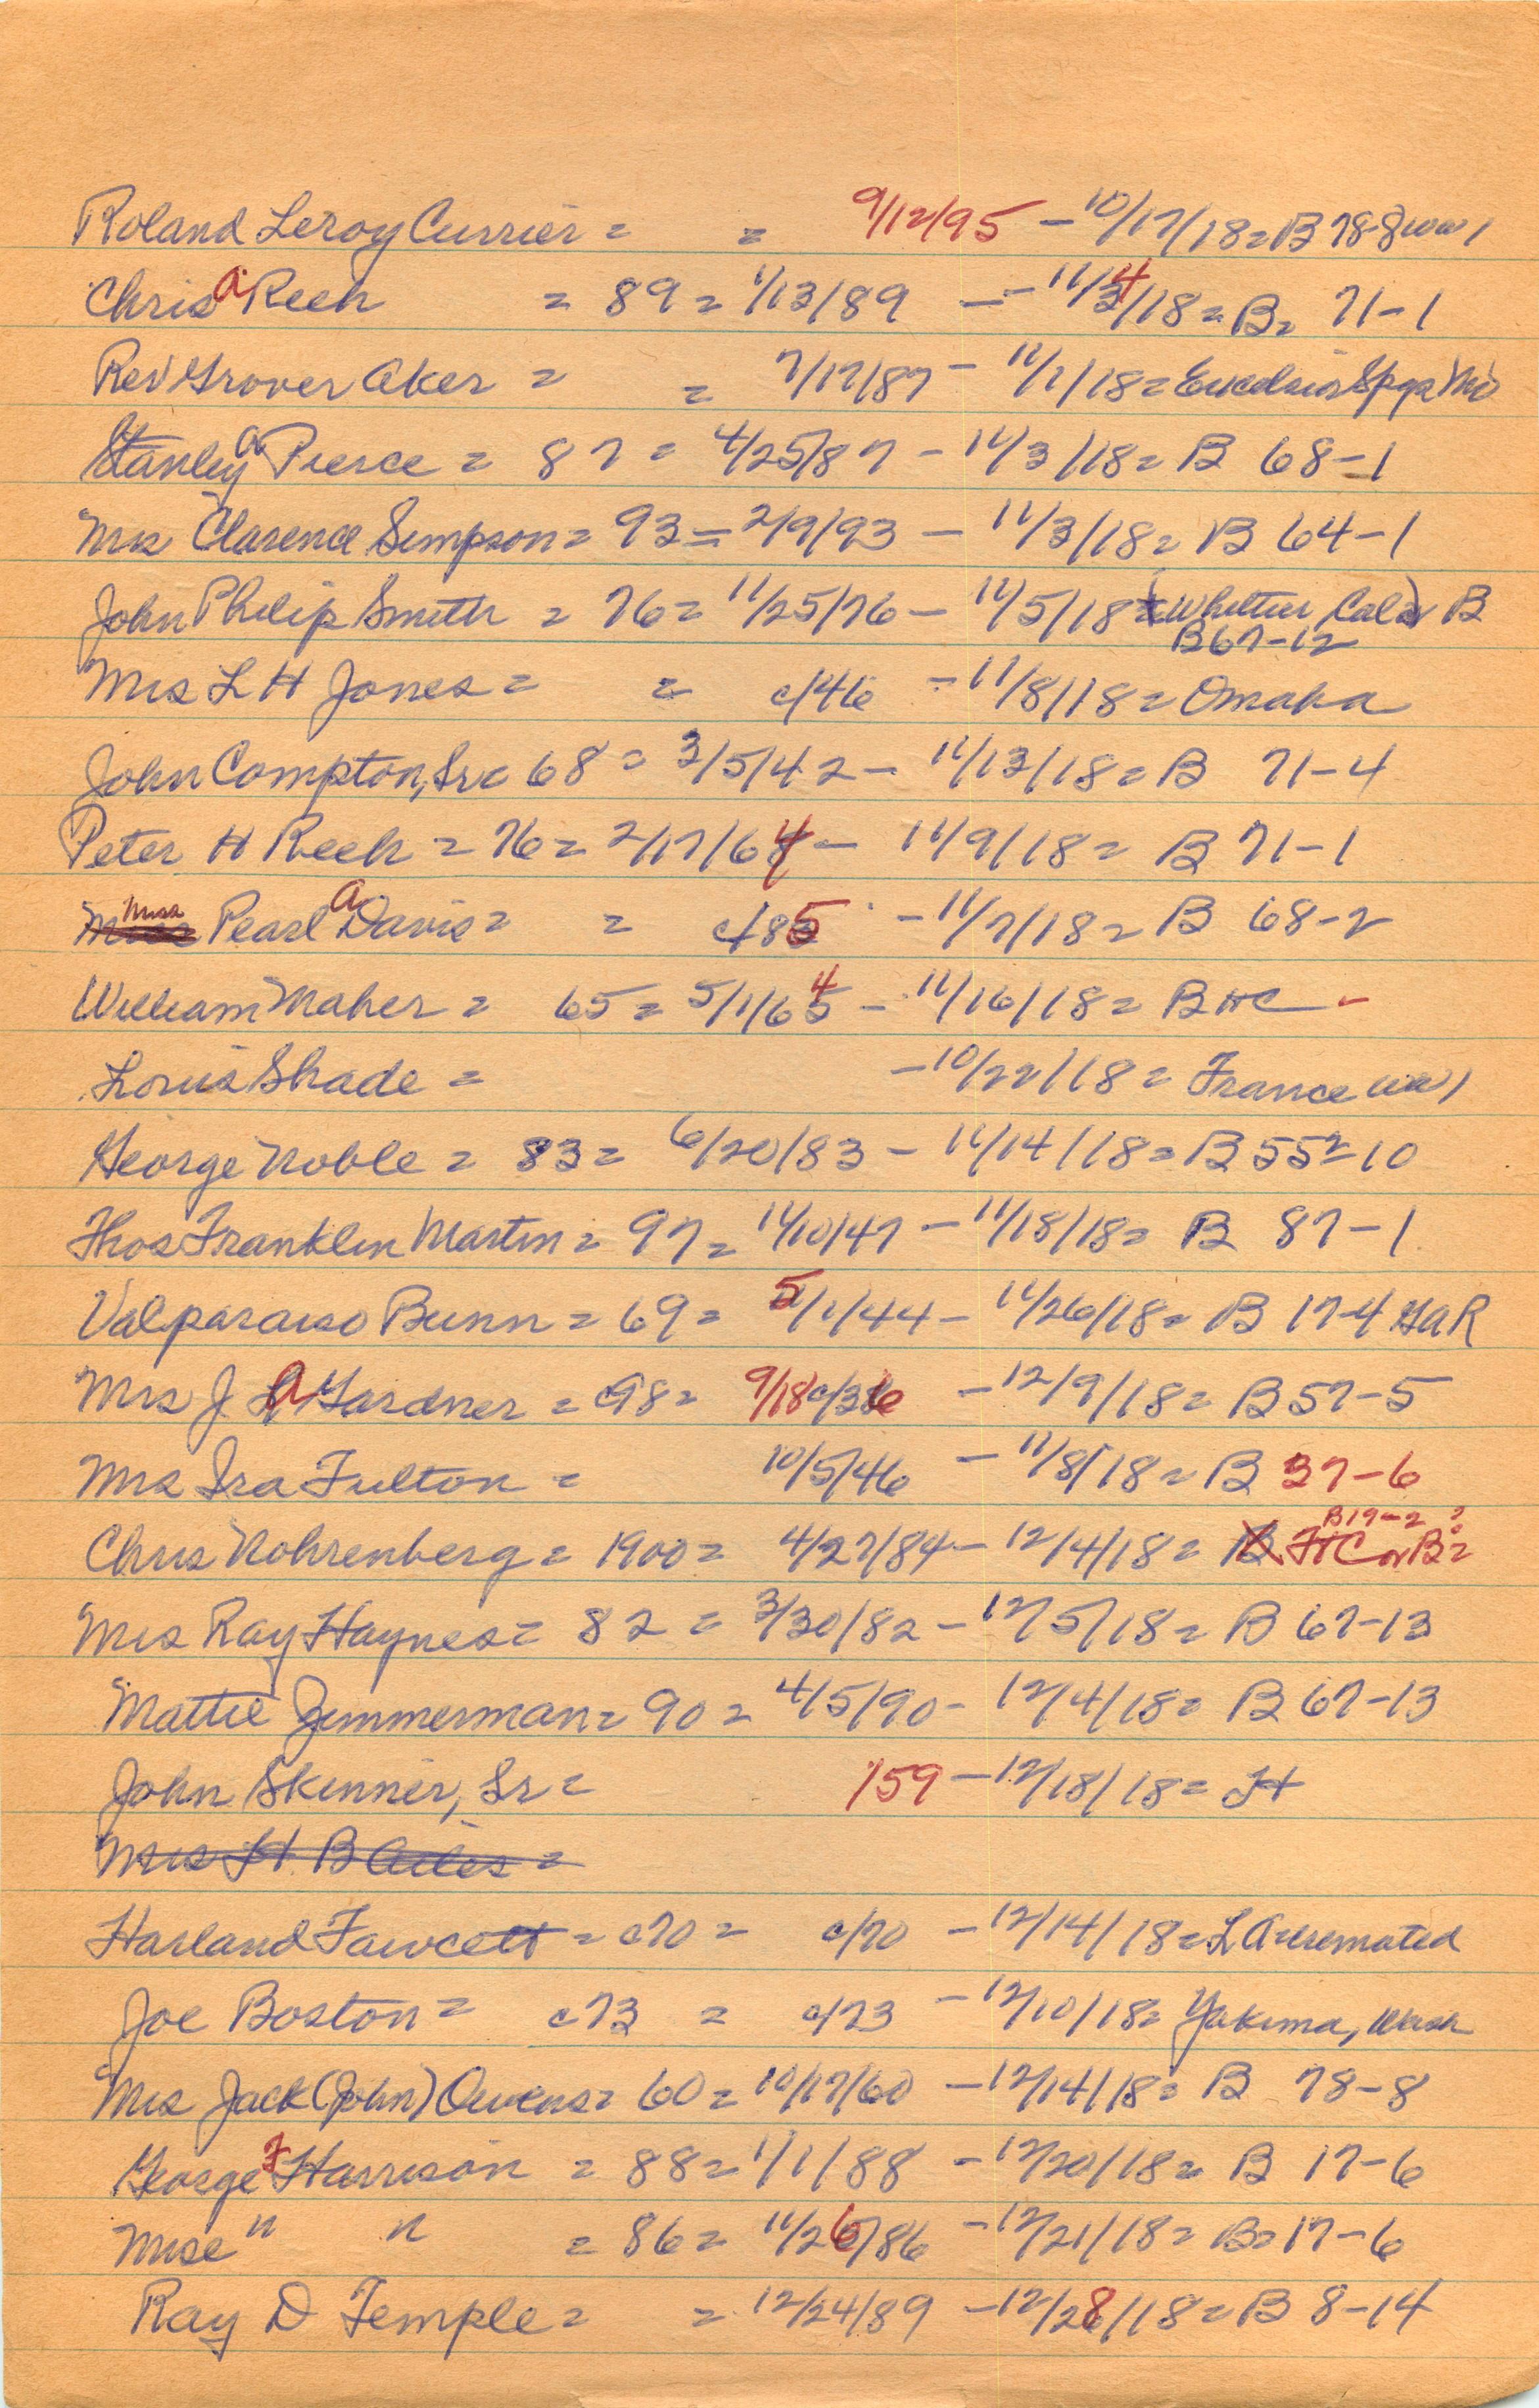 Roland Leroy Currier = = 9/12/95 - 10/17/18 = B 78-8 WW1
Chris A Reeh = 89 = 1/13/89 - - 11/4/18 = B = 71-1
Rev Grover Aker = = 7/17/87 - 11/1/18 = Excelsior Spgs Mo
Stanley A Pierce = 87 = 4/25/87 - 11/3/18 = B 68-1
Mrs Clarence Simpson = 93 = 2/9/93 - 11/3/18 = B 64-1
John Philip Smith = 76 = 11/25/76 - 11/5/18 = (Whittier, Cal) B
B 67-12
Mrs L H Jones = = c/46 - 11/8/18 = Omaha
John Compton, Sr = 68 = 3/5/42 - 11/13/18 = B 71-4
Peter H Reeh = 76 = 2/17/64 - 11/9/18 = B 71-1
Miss Pearl A Davis = = c/85 - 11/7/18 = B 68-2
William Maher = 65 = 5/1/64 - 11/16/18 = B HC -
Louis Shade = - 10/22/18 = France WW1
George Noble = 83 = 6/20/83 - 11/14/18 = B 55½-10
Thos Franklin Martin = 97 = 11/10/47 - 11/18/18 = B 87-1
Valparaiso Bunn = 69 = 5/1/44 - 11/26/18 = B 17-4 GAR
Mrs J A Gardner = c98 = 9/18 c/36 - 12/9/18 = B 57-5
Mrs Ira Fulton = 10/5/46 - 11/8/18 = B 37-6
B19-2 ?
Chris Nohrenberg = 1900 = 4/27/84 - 12/4/18 = B HC or B =
Mrs Ray Haynes = 82 = 3/30/82 - 12/5/18 = B 67-13
Mattie Zimmerman = 90 = 4/5/90 - 12/4/18 = B 67-13
John Skinner, Sr = /59 - 12/18/18 = H
Mrs H B Ailes =
Harland Fawcett = c70 = c/70 - 12/14/18 = L A cremated
Joe Boston = c73 = c/73 - 12/10/18 = Yakima, Wash
Mrs Jack (John) Owens = 60 = 10/17/60 - 12/14/18 = B 78-8
George F Harrison = 88 = 1/1/88 - 12/20/18 = B 17-6
Mrs " " = 86 = 11/26/86 - 12/21/18 = B = 17-6
Ray D Temple = = 12/24/89 - 12/28/18 = B 8-14